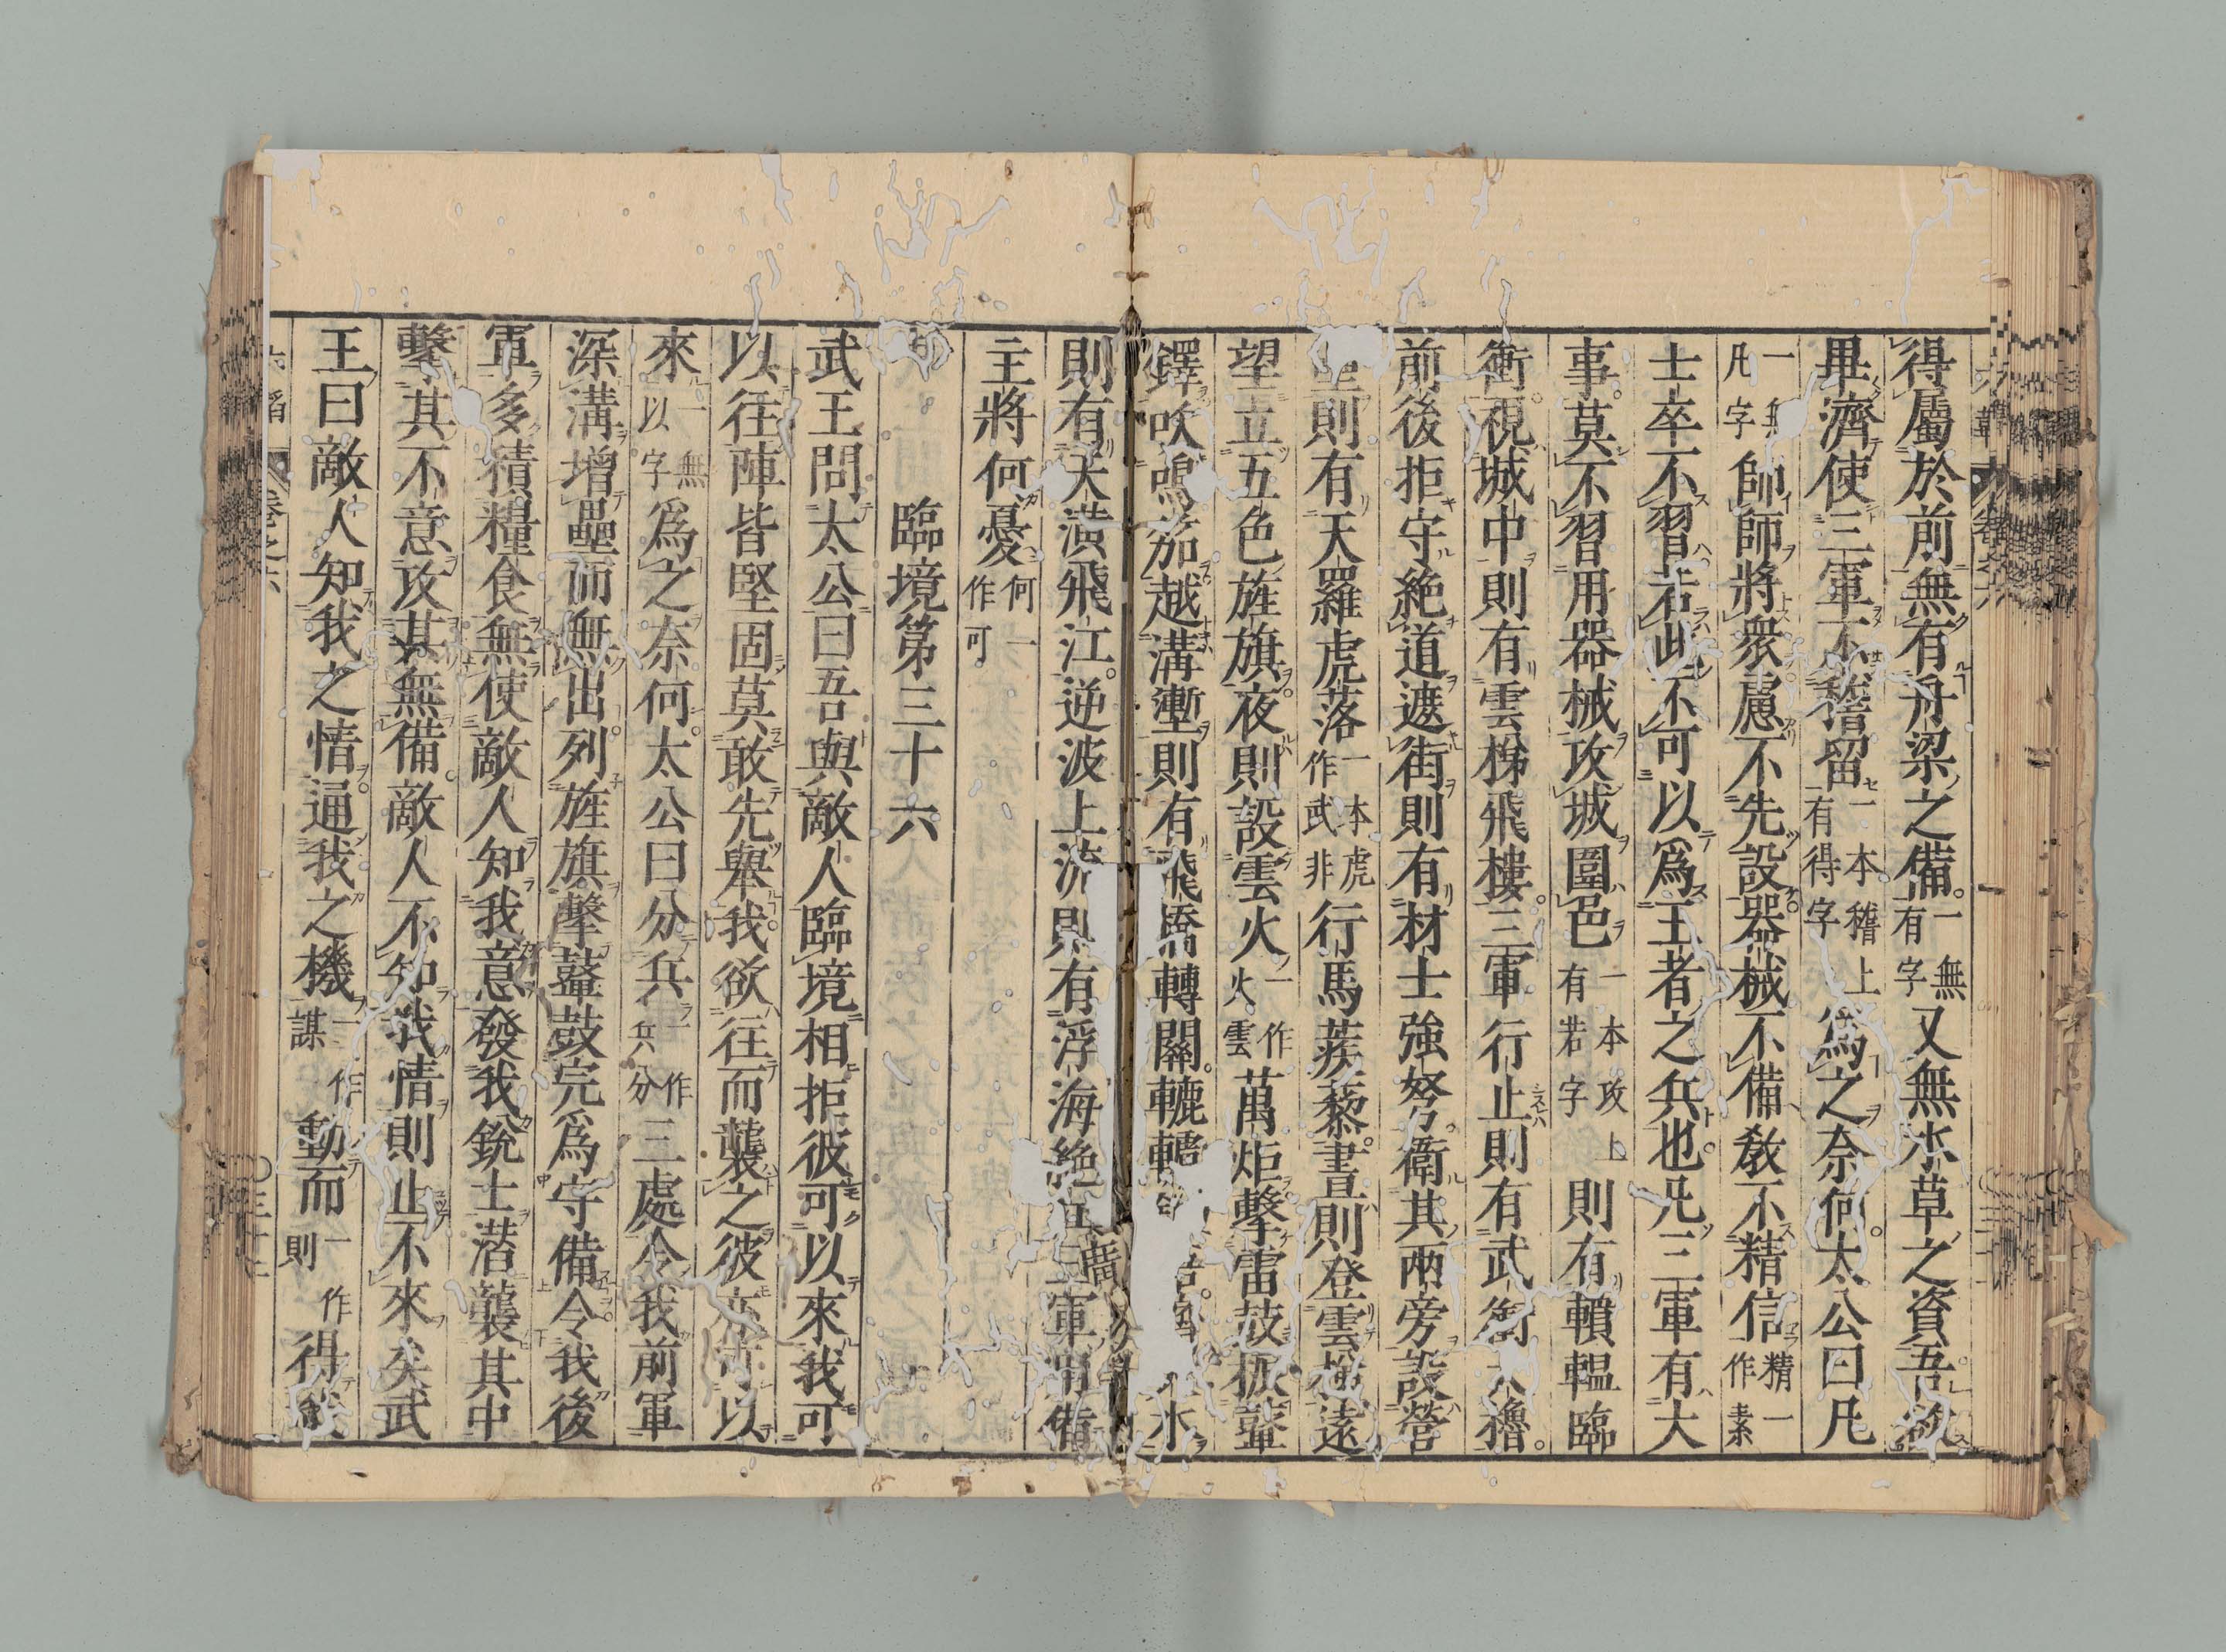 得屬於前無有舟梁之備一無有字又無水草之資吾欲
畢濟使三軍不稽留一本稽上有得字爲之奈何太公曰凡
一無凡字帥師將衆慮不先設器械不備敎不精信精一作素
士卒不習若此不可以爲王者之兵也凡三軍有大
事莫不習用器械攻城圍邑一本攻上有若字則有轒轀臨
衝視城中則有雲梯飛樓三軍行止則有武衝大櫓
前後拒守絶道遮街則有材士強弩衛其兩旁設營
壘則有天羅虎落一本虎作武非行馬蒺藜晝則登雲梯遠
望立五色旌旗夜則設雲火一作火雲萬炬擊雷鼓振鼙
鐸吹鳴笳越溝壍則有飛橋轉關轆轤水
則有天潢飛江逆波上流則有浮海絶江三軍用備
主將何憂何一作可
臨境第三十六
武王問太公曰吾與敵人臨境相拒彼可以來我可
以往陣皆堅固莫敢先舉我欲往而襲之彼亦可以
來一無以字爲之奈何太公曰分兵一作兵分三處令我前軍
深溝增壘而無出列旌旗擊鼙鼓完爲守備令我後
軍多積糧食無使敵人知我意發我銳士潛襲其中
擊其不意攻其無備敵人不知我情則止不來矣武
王曰敵人知我之情通我之機一作謀動而一作則得我